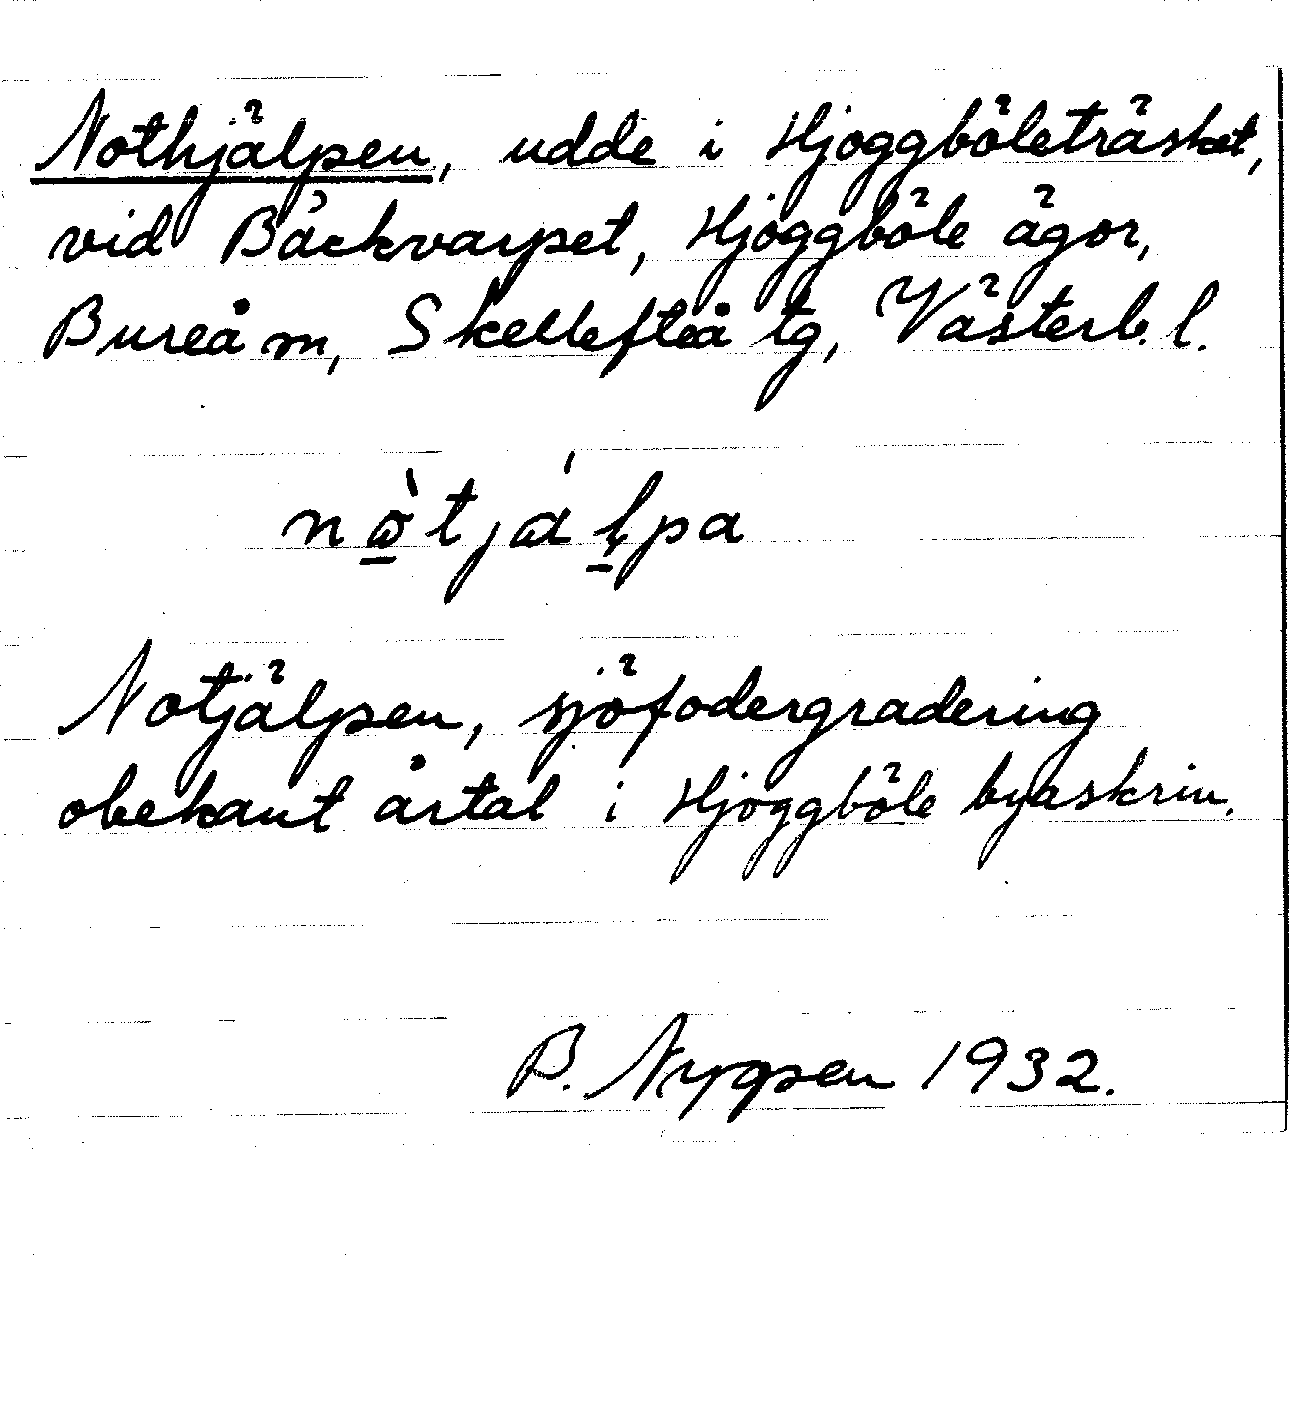 Nothjälpen, udde i Hjoggböleträsket,
vid Bäckvarpet, Hjoggböle ägor,
Bureå m, Skellefteå tg, Västerb. l.
Notjälpen, sjöfodergradering
obekant årtal i Hjoggböle byaskrin.
B. 1932.